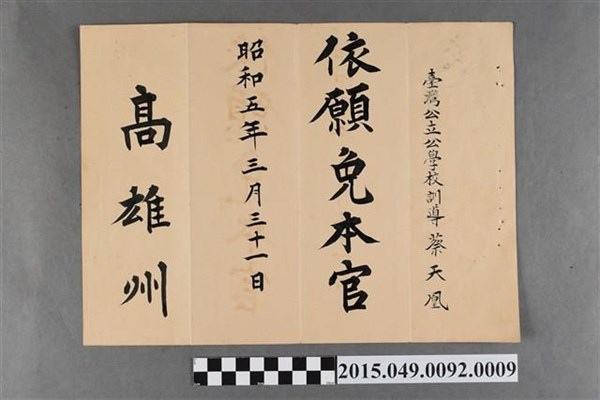 臺灣公立公學校訓導蔡天凰
依願免本官
昭和五年三月三十一日
高雄州
2015.049.0092.0009